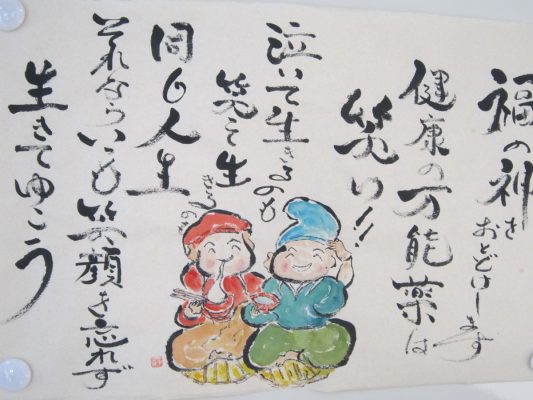 福の神を
おとどけします
健康の万能薬は
笑い!!
泣いて生きるのも
笑って生きるのも
同じ人生
それならいつも笑顔を忘れず
生きてゆこう